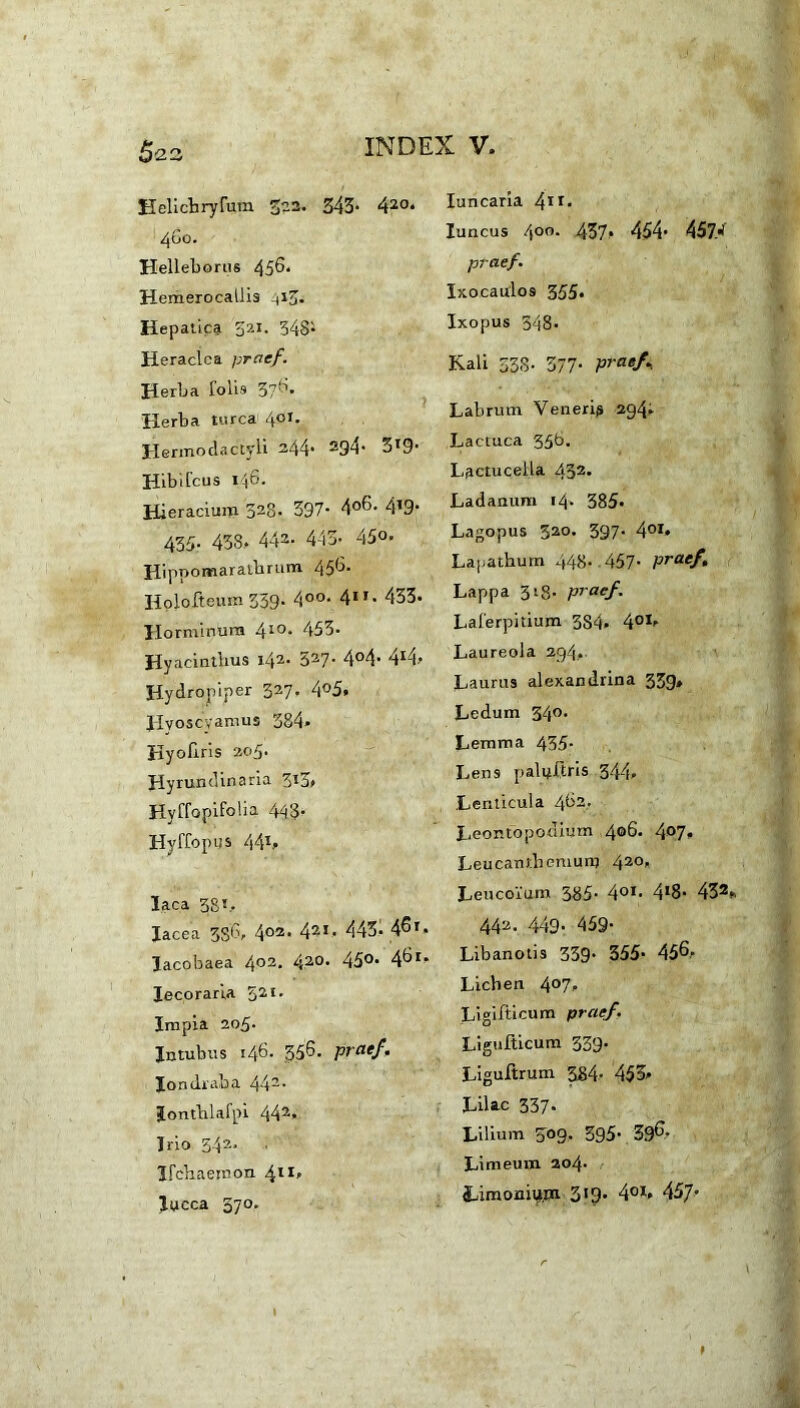 522
INDEX V.
Helichryſum 322. 343. 420.
460.
Helleborus 456.
Hemerocallis 413.
Hepatica 321. 348.
Heraclea praef.
Herba ſolis 376.
Herba turca 401.
Hermodactyli 244. 294. 319.
Hibiſcus 146.
Hieracium 328. 397. 406. 419.
435. 438. 442. 443. 450.
Hippomarathrum 456.
Holoſteum 339. 400. 411. 433.
Horminum 410. 453.
Hyacinthus 142. 327. 404. 414.
Hydropiper 327. 405.
Hyoscyamus 384.
Hyoſiris 205.
Hyrundinaria 313.
Hyſſopifolia 443.
Hyſſopus 441.
Iaca 381.
Iacea 386. 402. 421. 443. 461.
Iacobaea 402. 420. 450. 461.
Iecoraria 321.
Impia 205.
Intubus 146. 356. praef.
Iondraba 442.
Ionthlaſpi 442.
Irio 342.
Iſchaemon 411.
Iucca 370.
Iuncaria 411.
Iuncus 400. 437. 454. 457.
praef.
Ixocaulos 355.
Ixopus 348.
Kali 338. 377. praef.
Labrum Veneris 294.
Lactuca 356.
Lactucella 432.
Ladanum 14. 385.
Lagopus 320. 397. 401.
Lapathum 448. 457. praef.
Lappa 318. praef.
Laſerpitium 384. 401.
Laureola 294.
Laurus alexandrina 339.
Ledum 340.
Lemma 435.
Lens paluſtris 344.
Lenticula 462.
Leontopodium 406. 407.
Leucanthemum 420.
Leucoïum 385. 401. 418. 432.
442. 449. 459.
Libanotis 339. 355. 456.
Lichen 407.
Ligiſticum praef.
Liguſticum 339.
Liguſtrum 384. 453.
Lilac 337.
Lilium 309. 395. 396.
Limeum 204.
Limonium 319. 401. 457.